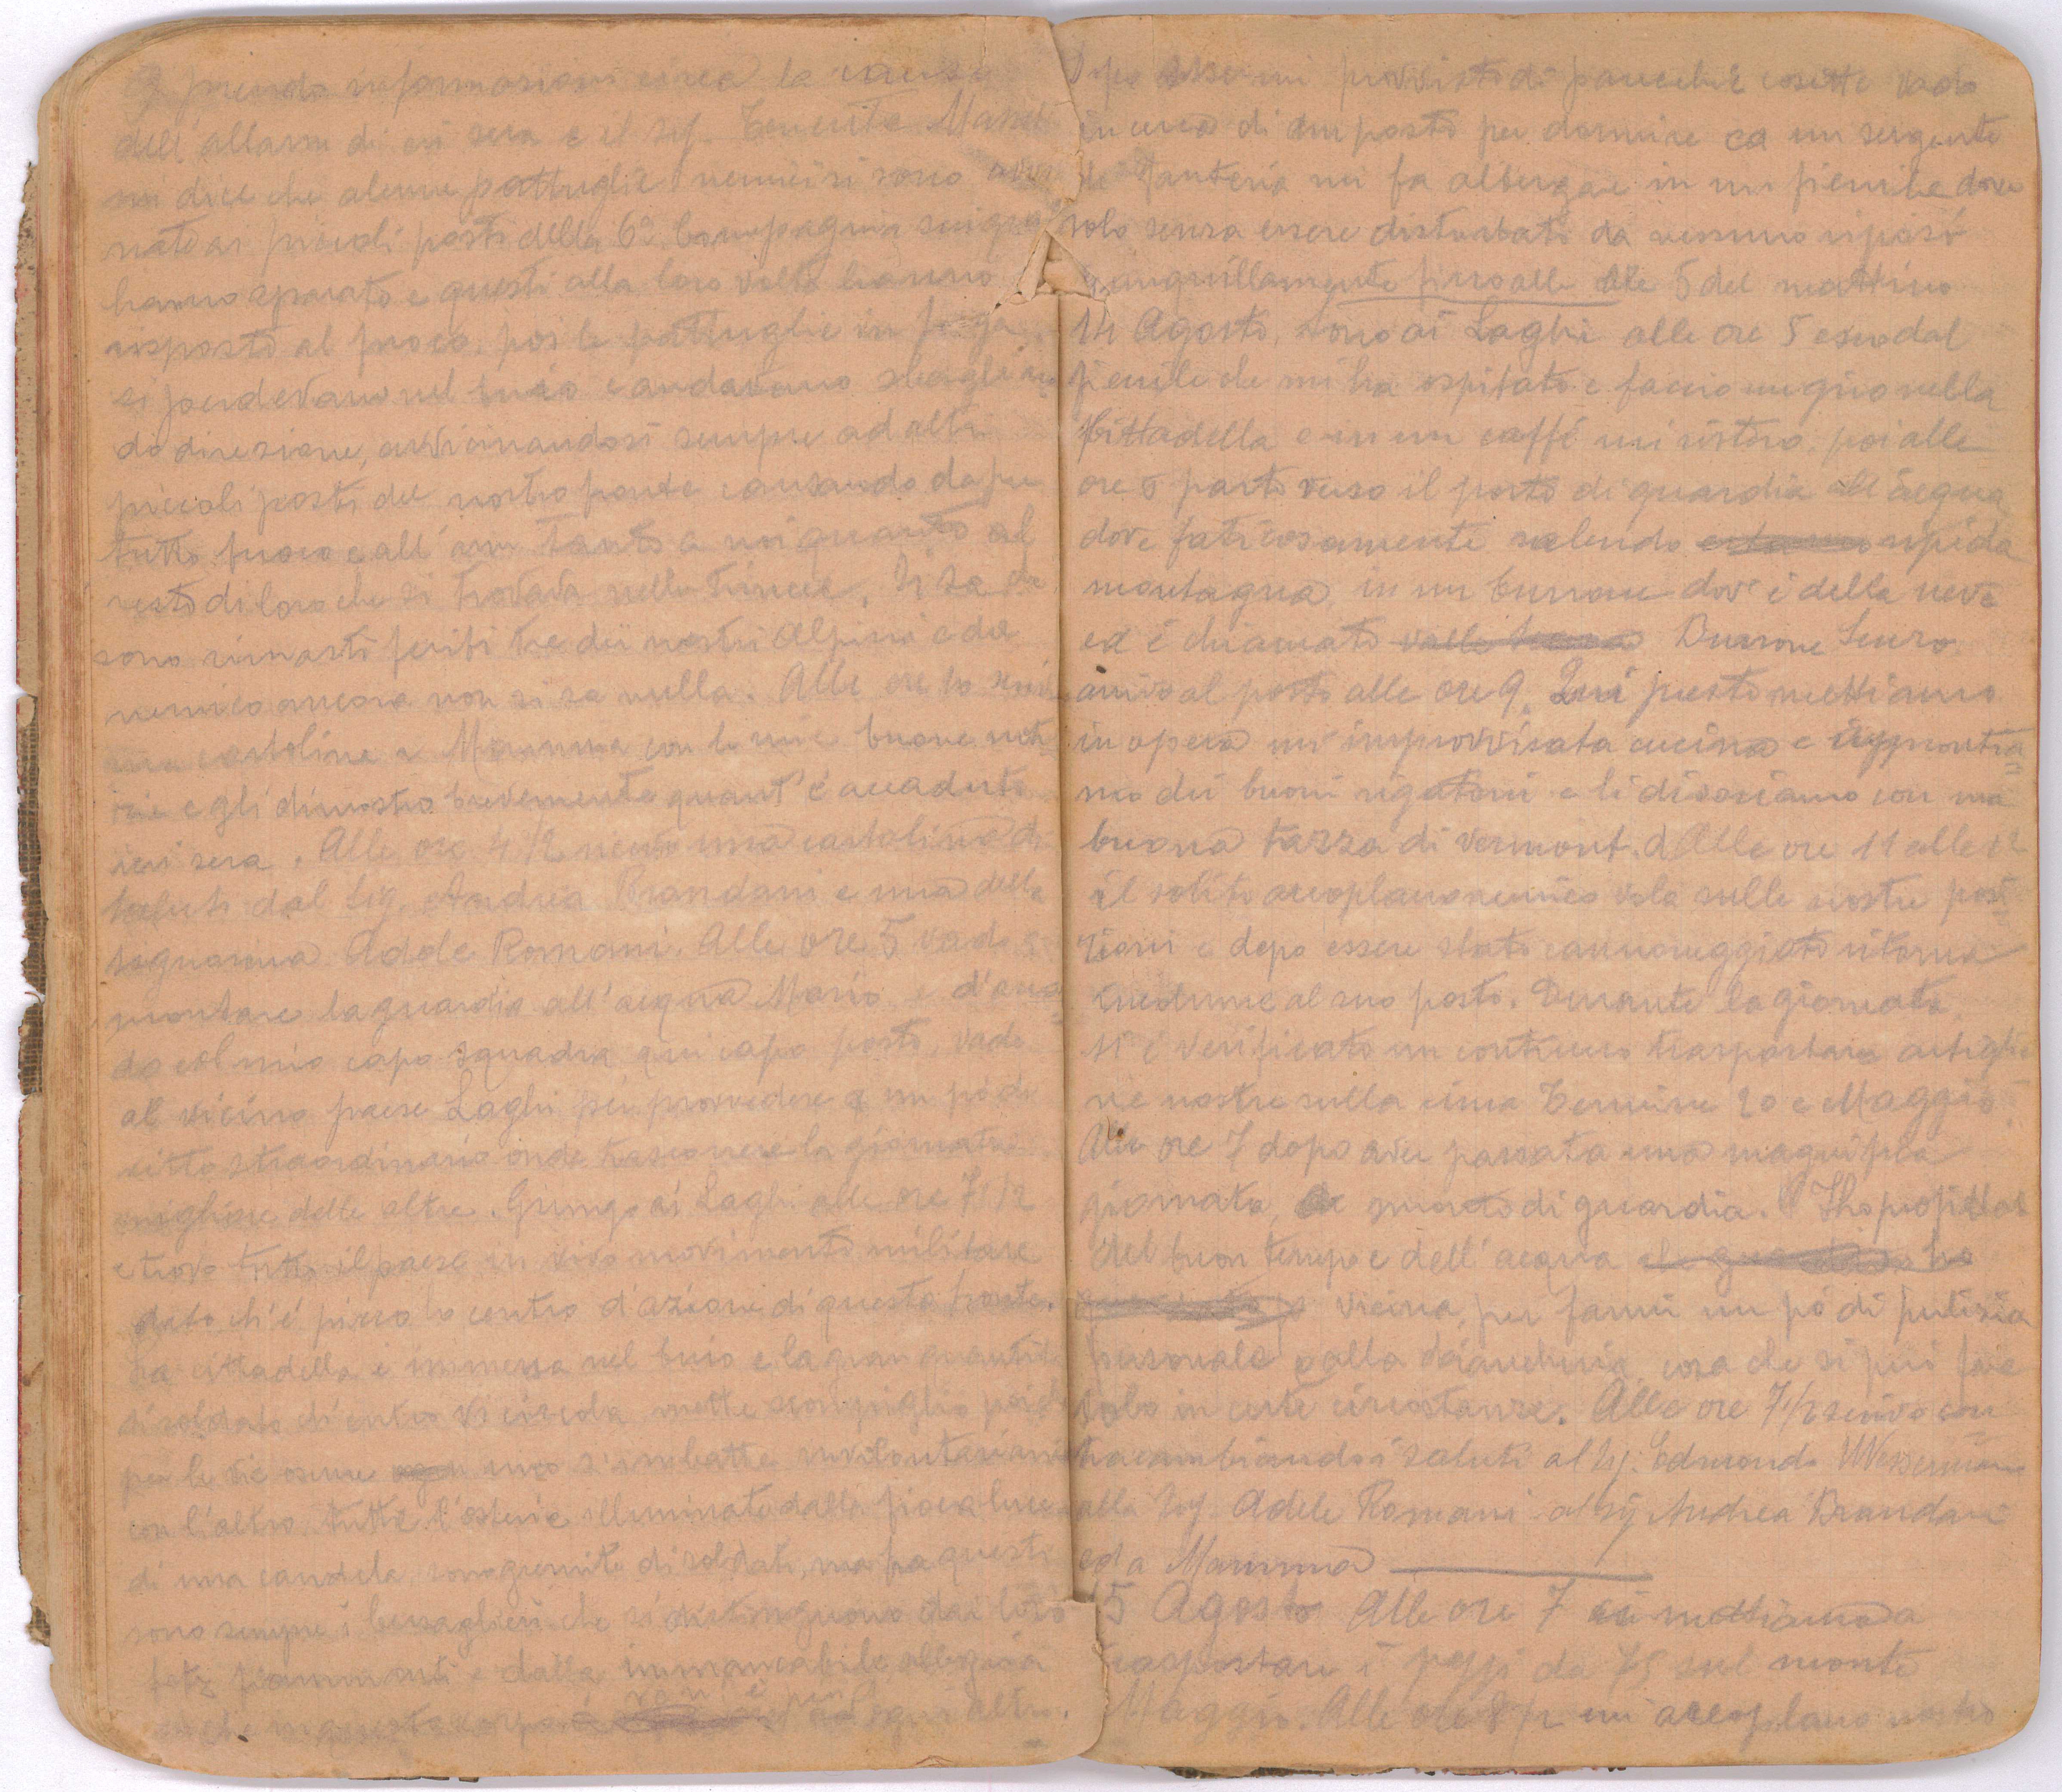 9 prendo informazioni circa la causa
dell'allarm di eri sera e il sig. Tenente
mi dice che alcune pattuglie nemiche si sono
nate ai piccoli posti della 6ª Compagnia
hanno sparato e questi alla loro volta hanno
risposto al fuoco. poi le pattuglie in fuga
si perdevano nel buio e andavano sbaglian
do direzione, avvicinandosi sempre ad altri
piccoli posti del nostro fronte causando da per
tutto fuoco e all'arm tanto a noi quanto al
resto di loro che si trovava nelle trincee. Si sa che
sono rimasti feriti tre dei nostri Alpini e del
nemico ancora non si sa nulla. Alle ore 10 scrivo
una cartolina a Mamma con le mie buone noti
zie e gli dimostro brevemente quant'è accaduto
ieri sera. Alle ore 4 1/2 ricevo una cartolina di
saluti dal Sig. Andrea Brandani e una della
signorina Adele Romani. Alle ore 5 vado a
montare la guardia all'acqua Mario e
do col mio capo squadra qui capo posto, vado
al vicino paese Laghi per provvedere a un pò di
vitto straordinario onde trascorrere la giornata
migliore delle altre. Giungo ai Laghi alle ore 7 1/2
e trovo tutto il paese in vivo movimento militare
dato ch'è piccolo centro d'azione di questo fronte.
La cittadella è immersa nel buio e la gran quantità
di soldato ch'entro vi circola mette scompiglio poichè
per le vie oscure uno s'imbatte involontariamente
con l'altro. tutte l'osterie illuminate dalla fioca luce
di una candela, sono gremite di soldati, ma fra questi
sono sempre i bersaglieri che si distinguono dai loro
fetz fiammanti e dalla immancabile allegria
che in questo corpo vi è più d'ogni altro.
Dopo essermi provvisto di parecchie cosette vado
in cerca di un posto per dormire ed un sergente
di fanteria mi fa albergare in un fienile dove
solo senza essere disturbato da nessuno riposo
tranquillamente fino alle ore 5 del mattino
14 Agosto, sono ai Laghi alle ore 5 esco dal
fienile che mi ha ospitato e faccio un giro nella
Cittadella e in un caffè mi ristoro. poi alle
ore 6 parto verso il posto di guardia all'acqua
dove faticosamente salendo ripida
montagna in un burrone dov'è della neve
ed è chiamato valle Burrone Scuro
arrivo al posto alle ore 9. Qui presto mettiamo
in opera un'improvvisata cucina e approntia
mo dei buoni rigatoni e li divoriamo con una
buona tazza di vermont. Alle ore 11 alle 12
il solito areoplano nemico vola sulle nostre posi
zioni e dopo essere stato cannoneggiato ritorna
incolume al suo posto. Durante la giornata
si è verificato un continuo trasportare artiglie
rie nostre sulla cima Termine 20 e Maggio
Alle ore 7 dopo aver passata una magnifica
giornata, smonto di guardia. Ho profittato
del buon tempo e dell'acqua
vicina, per farmi un pò di pulizia
personale e alla biancheria cosa che si può fare
solo in certe circostanze. Alle ore 7 1/2 scrivo con
tracambiandosi saluti al sig. Edmondo
alla Sig. Adele Romani al sig Andrea Brandani
ed a Mamma
15 Agosto Alle ore 7 ci mettiamo a
trasportare i pezzi da 75 sul monte
Maggio. Alle ore 8 1/2 un areoplano nostro